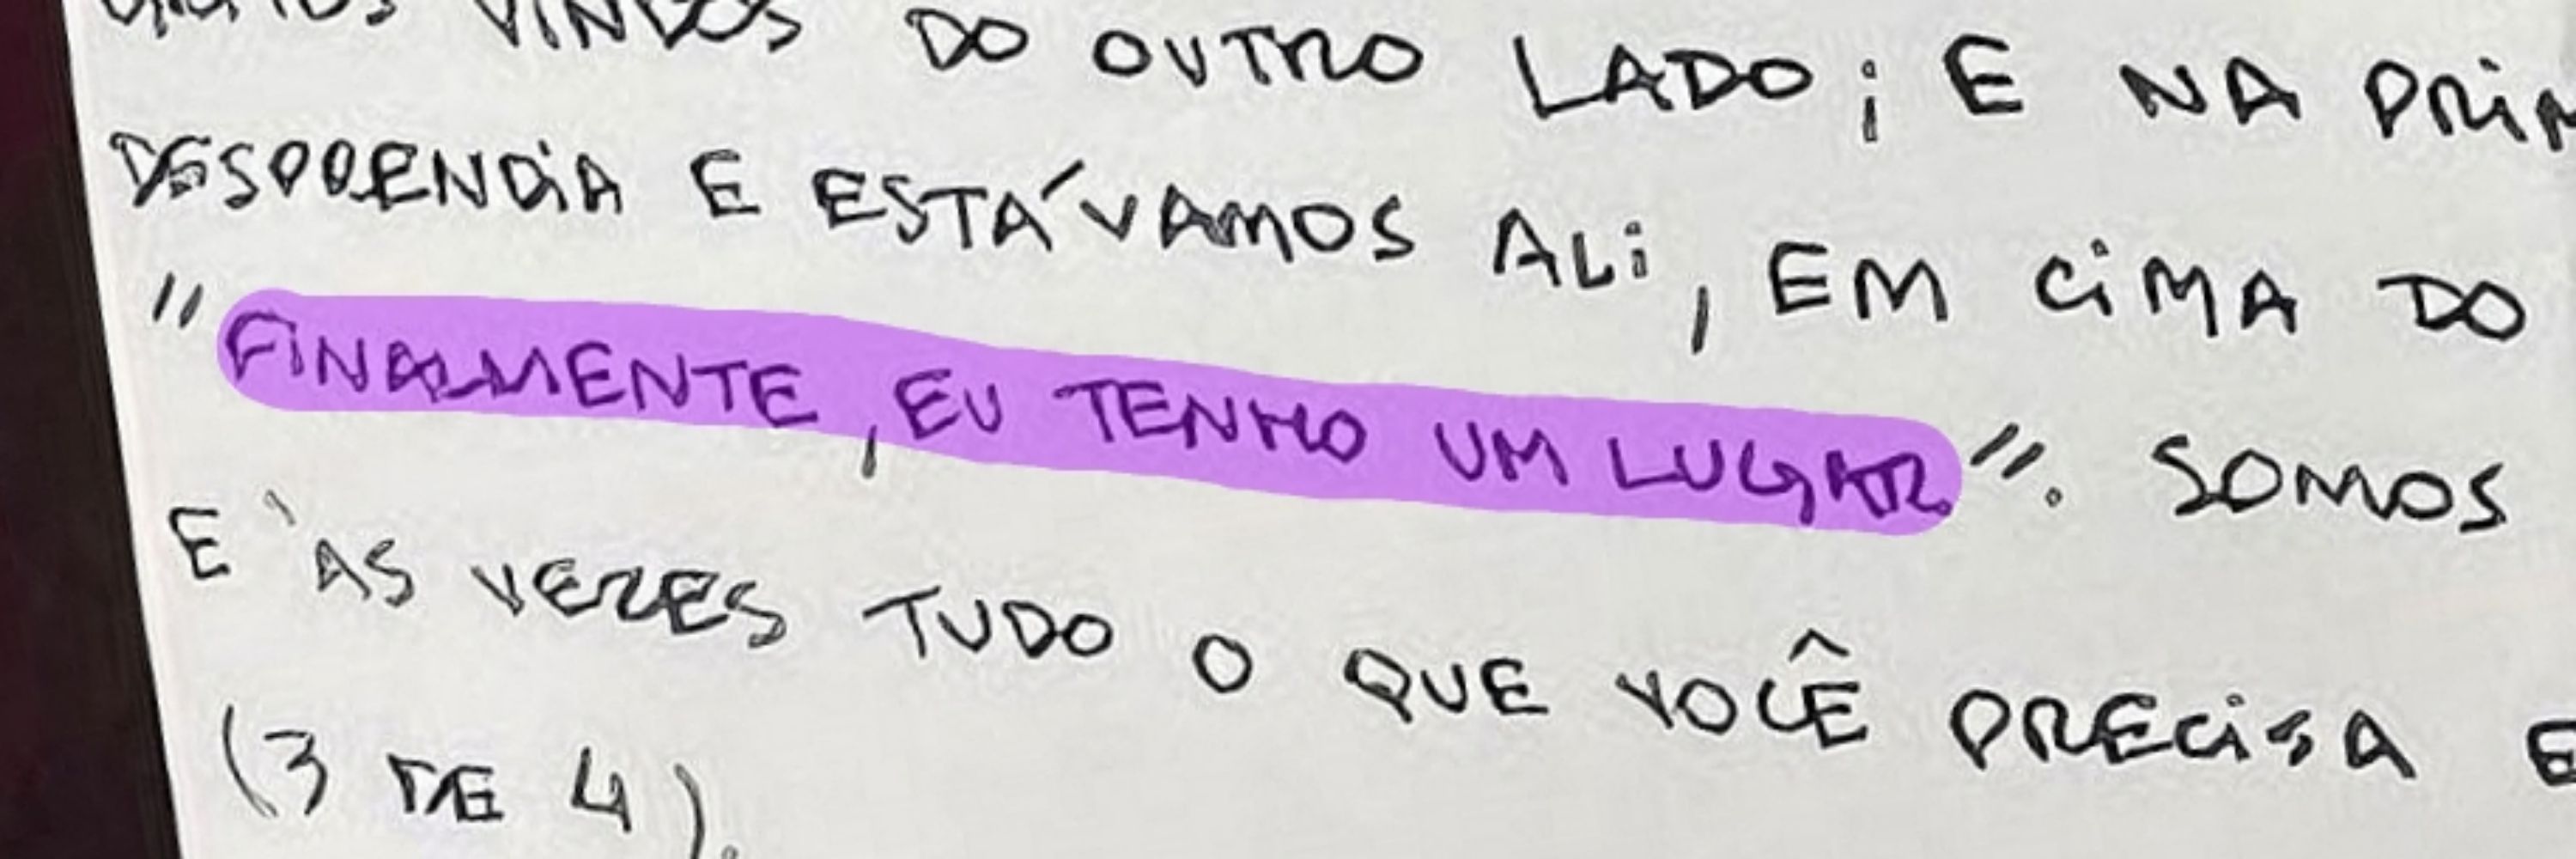 VINDOS DO OUTRO LADO; E NA
DESPRENDIA E ESTÁVAMOS ALI, EM CIMA DO
"FINALMENTE, EU TENHO UM LUGAR". SOMOS
E ÀS VEZES TUDO O QUE VOCÊ PRECISA
(3 DE 4).